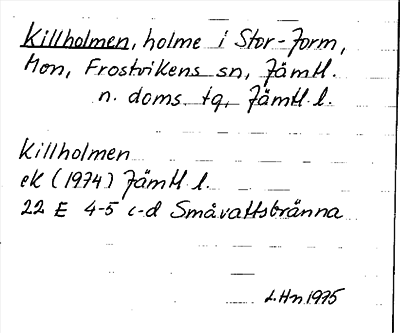 Killholmen, holme i Stor-Jorm,
Hon, Frostvikens sn, Jämtl.
n. doms. tg, Jämtl. l.
Killholmen
ek (1974) Jämtl l.
22 E 4-5 c-d Småvattsbränna
L. Hn 1975